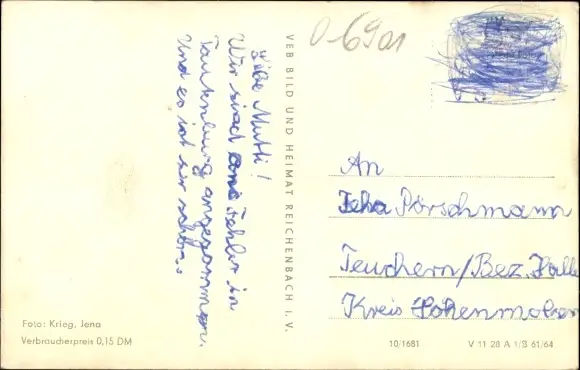 0-6901
Liebe Mutti!
Wir sind ohne Fehler in
Tautenburg angekommen.
Und es ist sehr schön.
VEB BILD UND HEIMAT REICHENBACH I. V.
An
Pörschmann
Teuchern/Bez. Halle
Kreis Hohenmölsen
Foto: Krieg, Jena
Verbraucherpreis 0,15 DM
10/1681
V 11 28 A 1/B 61/64